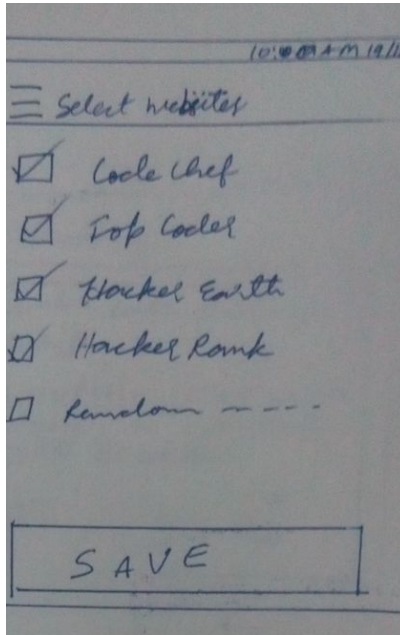 AM
Select websites
Code Chef
Top Coder
Hacker Earth
Hacker Rank
Random -----
SAVE